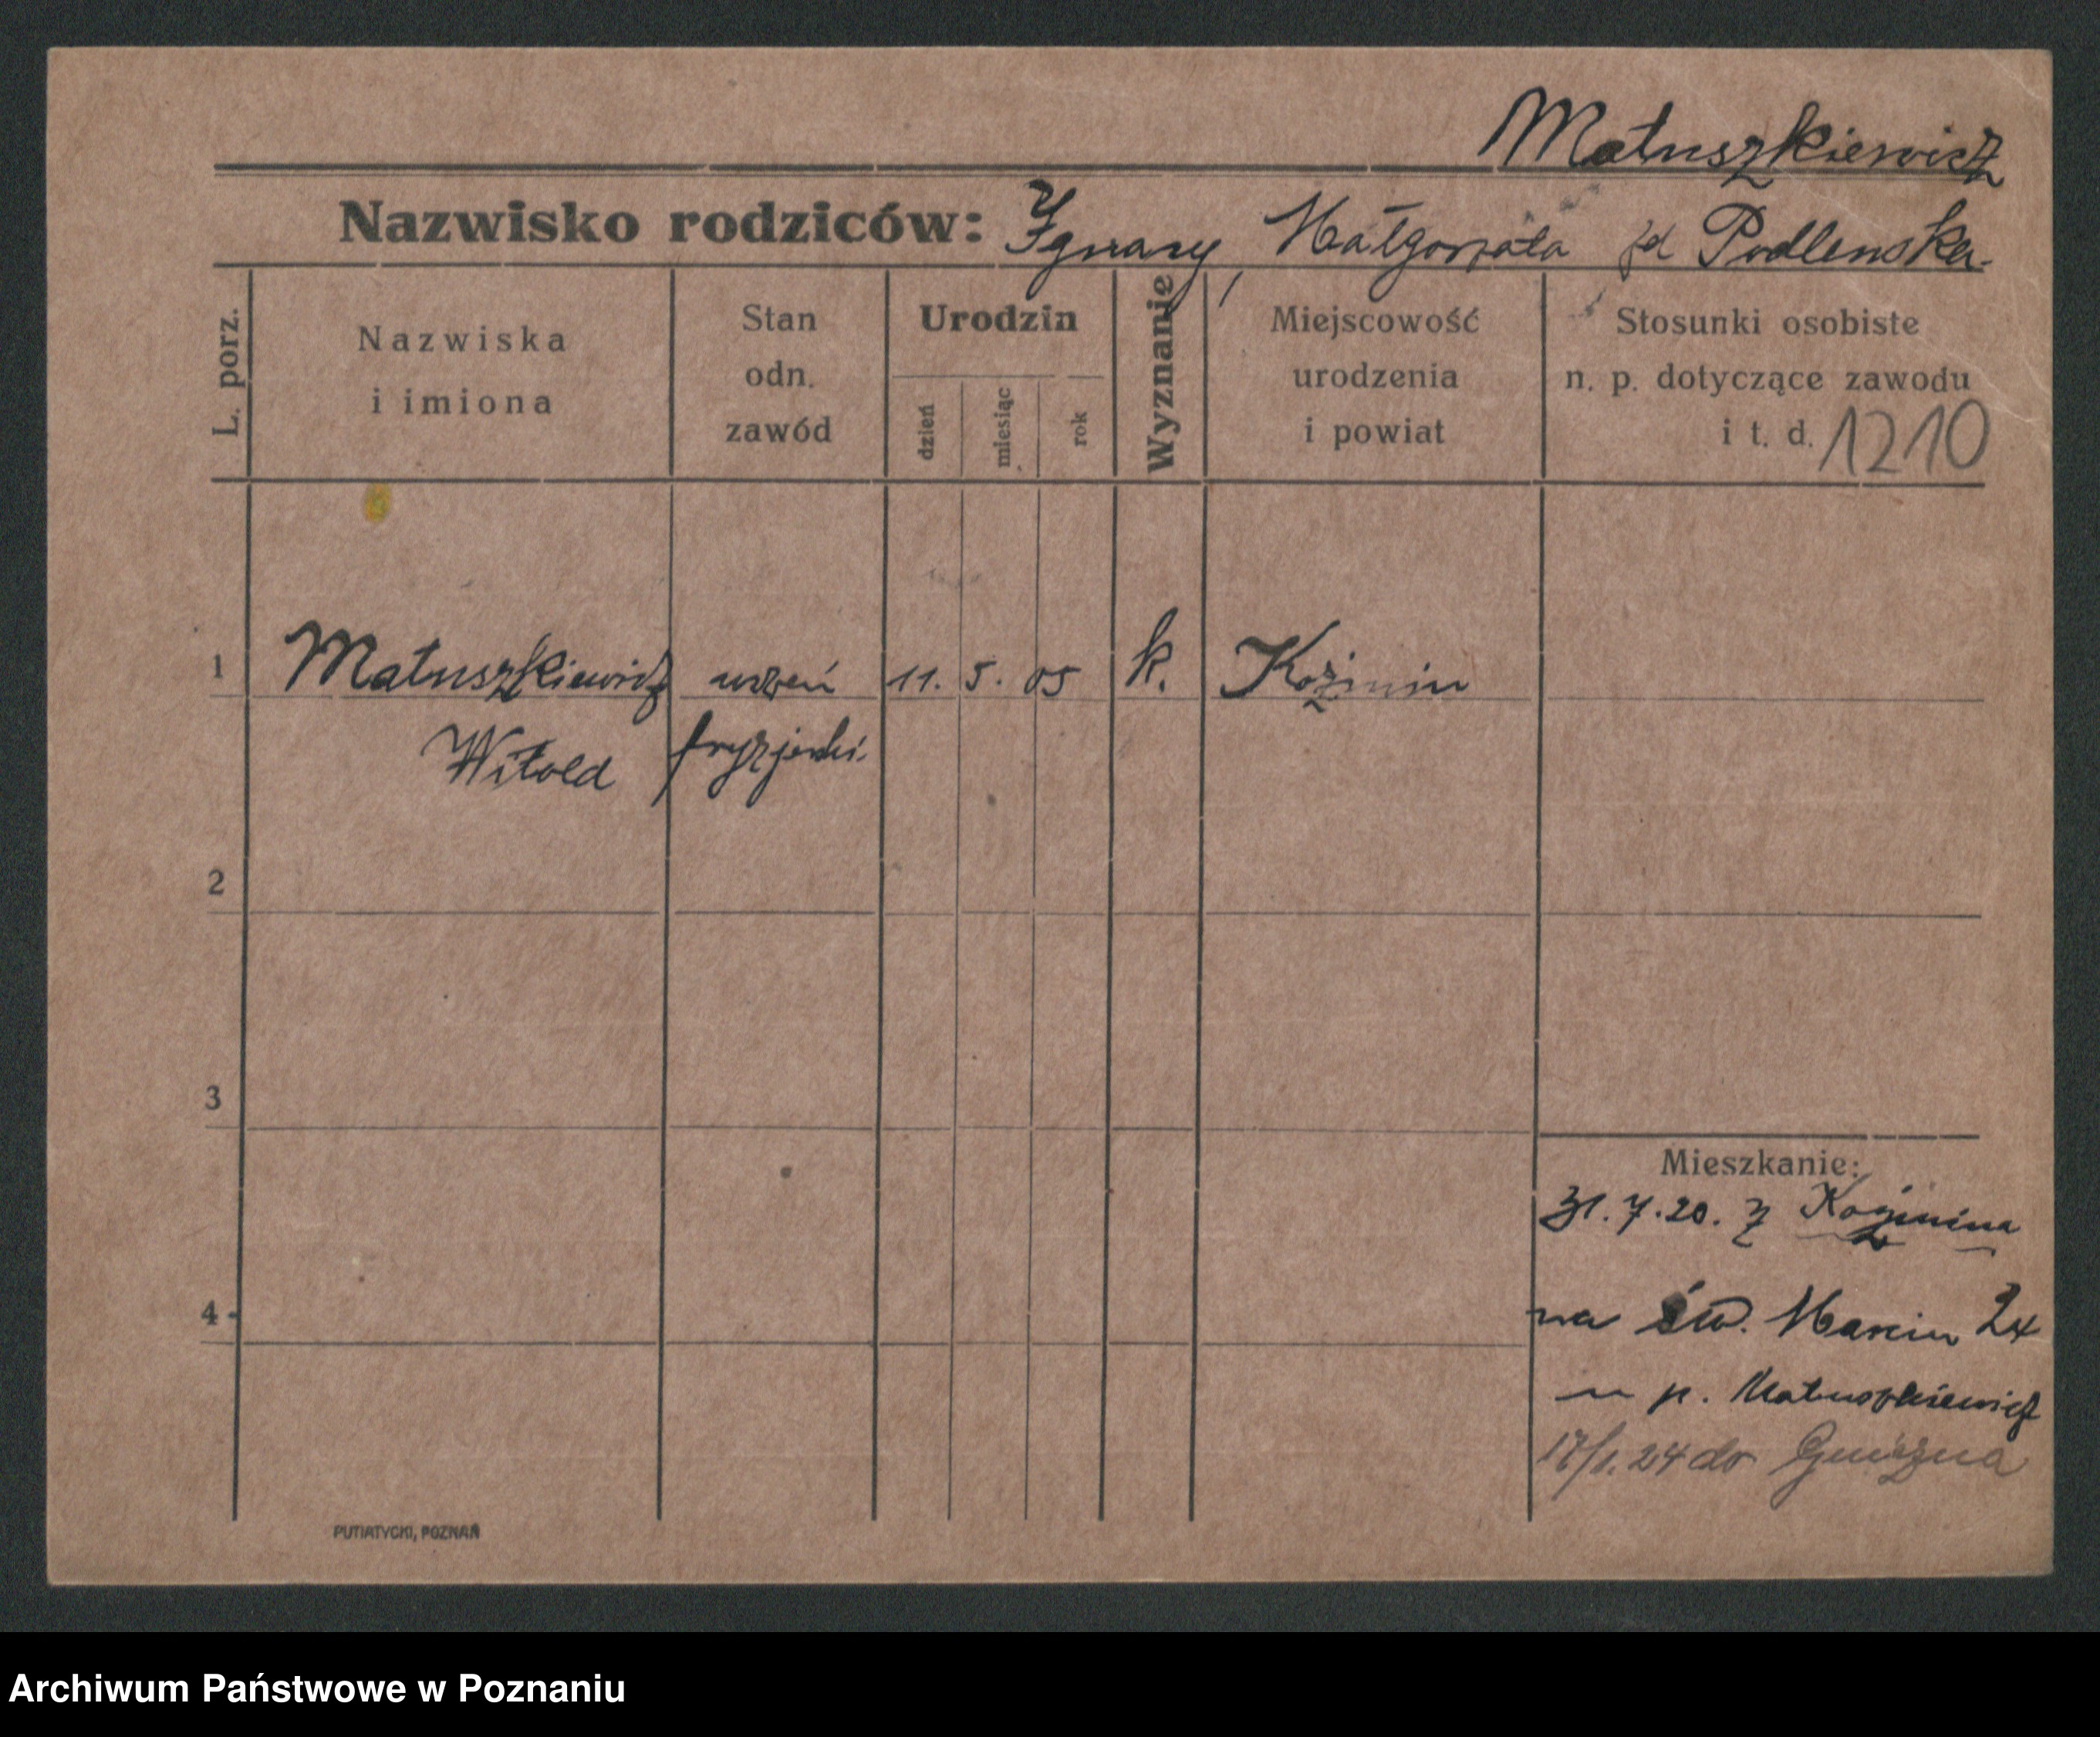 Matuszkiewicz
Nazwisko rodziców: Ignacy, Małgorzata zd Podlenska.
L. porz.
Nazwiska
i imiona
Stan
odn.
zawód
Urodzin
dzień
miesiąc
rok
Wyznanie
Miejscowość
urodzenia
i powiat
Stosunki osobiste
n. p. dotyczące zawodu
i t. d. 1210
1 Matuszkiewicz uczeń 11. 5. 05 k. Koźmin
Witold fryzjerski.
2
3
4
Mieszkanie:
31.7.20. z Koźmina
na św. Marcin 24
u p. Matuszkiewicz
17/1.24 do Gniezna
PUTIATYCKI, POZNAŃ
Archiwum Państwowe w Poznaniu